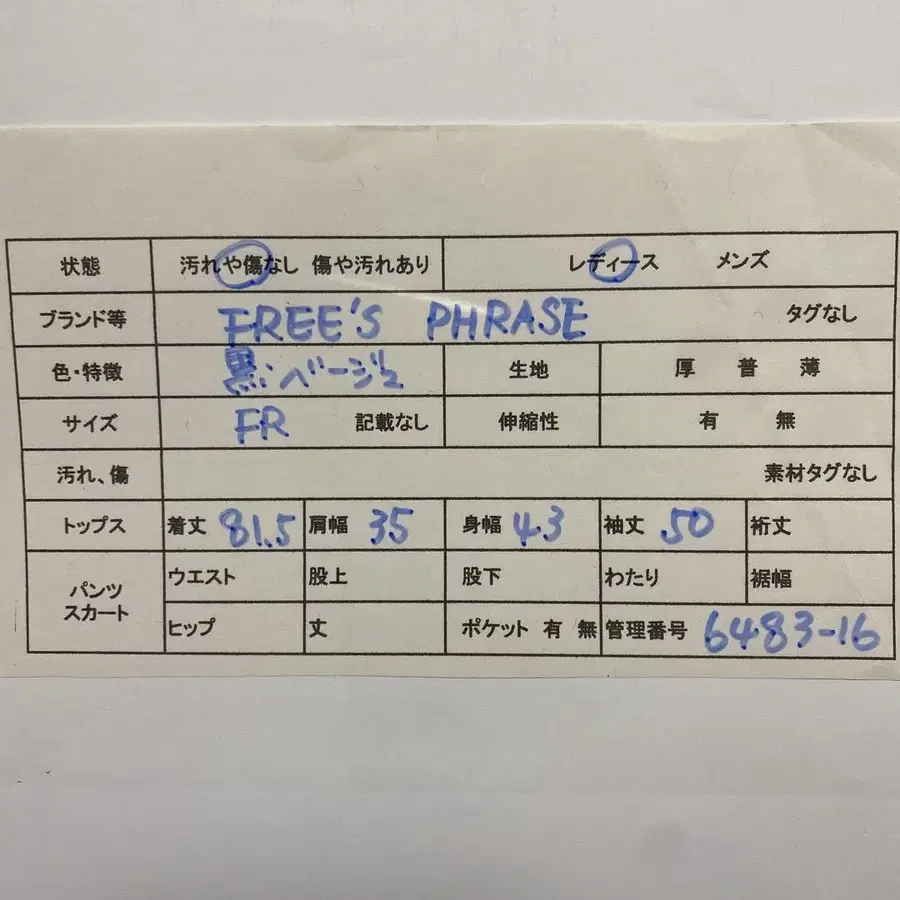 状態 汚れや傷なし 傷や汚れあり レディース メンズ
ブランド等 FREE'S PHRASE タグなし
色・特徴 黒、ベージュ 生地 厚 普 薄
サイズ FR 記載なし 伸縮性 有 無
汚れ、傷 素材タグなし
トップス 着丈 81.5 肩幅 35 身幅 43 袖丈 50 裄丈
パンツ スカート ウエスト 股上 股下 わたり 裾幅
ヒップ 丈 ポケット 有 無 管理番号 6483-16